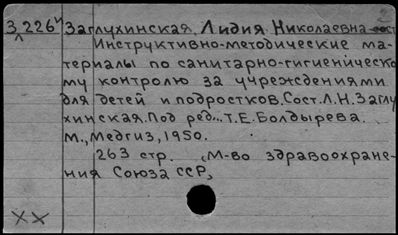 3226 Заглухинская, Лидия Николаевна сост
Инструктивно-методические ма-
териалы по санитарно-гигиеническо
му контролю за учреждениями
для детей и подростков. Сост. Л.Н. Заглу
хинская. Под ред... Т.Е. Болдырева.
М., Медгиз, 1950.
263 стр. „М-во здравоохране-
ния Союза ССР„
XX